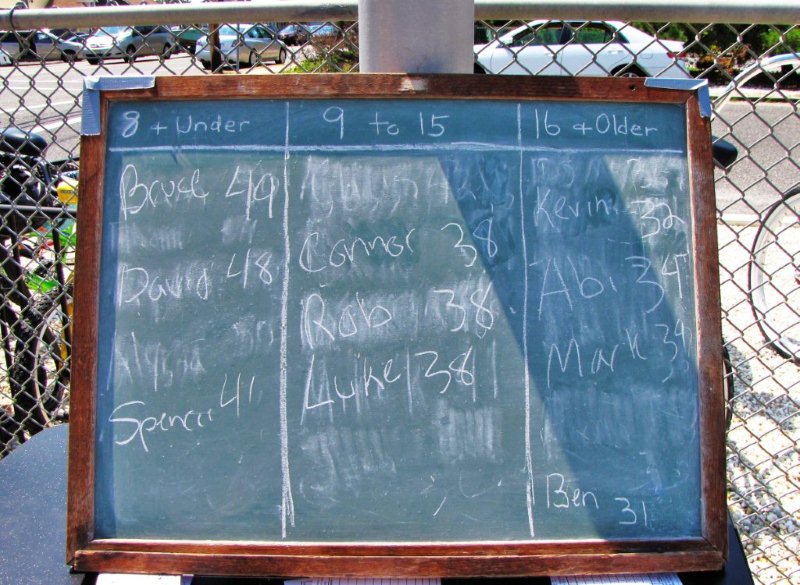 8 + Under
Brysl 49
David 48
Spencer 41
9 to 15
Connor 38
Rob 38
Luke 38
16 + Older
Kevin 32
Abi 34
Mark 34
Ben 31